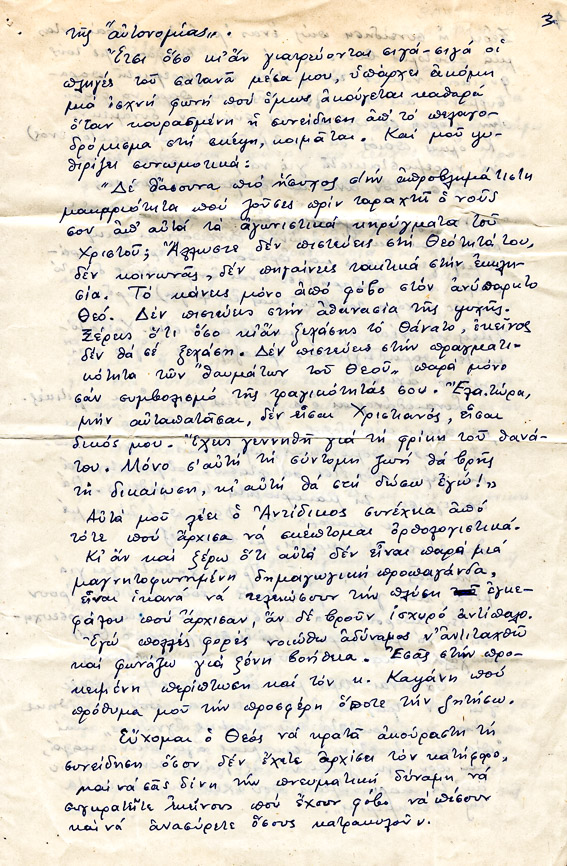 3
τῆς "αὐτονομίας".
Ἔτσι ὅσο κι' ἄν γιατρεύονται σιγά-σιγά οἱ
πληγές τοῦ σατανᾶ μέσα μου, ὑπάρχει ἀκόμη
μιά ἰσχνή φωνή πού ὅμως ἀκούγεται καθαρά
ὅταν κουρασμένη ἡ συνείδηση ἀπ' τό πελαγο-
δρόμισμα στή σκέψη, κοιμᾶται. Καί μοῦ ψι-
θιρίζει συνωμοτικά:
"Δέ θἄσουνα πιό ἥσυχος στήν ἀπροβλημάτιστη
μακαριότητα πού ζοῦσες πρίν ταραχτῆ ὁ νοῦς
σου ἀπ' αὐτά τά ἀγωνιστικά κηρύγματα τοῦ
Χριστοῦ; Ἄλλωστε δέν πιστεύεις στή Θεότητά του,
δέν κοινωνᾶς, δέν πηγαίνεις τακτικά στήν ἐκκλη-
σία. Τό κάνεις μόνο ἀπό φόβο στόν ἀνύπαρκτο
Θεό. Δέν πιστεύεις στήν ἀθανασία τῆς ψυχῆς.
Ξέρεις ὅτι ὅσο κι' ἄν ξεχάσης τό θάνατο, ἐκεῖνος
δέν θά σέ ξεχάση. Δέν πιστεύεις στήν πραγματι-
κότητα τῶν "θαυμάτων τοῦ Θεοῦ" παρά μόνο
σάν συμβολισμό τῆς τραγικότητάς σου. Ἔλα τώρα,
μήν αὐταπατᾶσαι, δέν εἶσαι Χριστιανός, εἶσαι
δικός μου. Ἔχεις γεννηθῆ γιά τή φρίκη τοῦ θανά-
του. Μόνο σ' αὐτή τή σύντομη ζωή θά βρῆς
τή δικαίωση, κι' αὐτή θά στή δώσω ἐγώ!"
Αὐτά μοῦ λέει ὁ Ἀντίδικος συνέχεια ἀπό
τότε πού ἄρχισα νά σκέπτομαι ὀρθολογιστικά.
Κι' ἄν καί ξέρω ὅτι αὐτά δέν εἶναι παρά μιά
μαγνητοφωνημένη δημαγωγική προπαγάνδα,
εἶναι ἱκανά νά τελειώσουν τήν πλύση ἐγκε-
φάλου πού ἄρχισαν, ἄν δέ βροῦν ἰσχυρό ἀντίπαλο.
Ἐγώ πολλές φορές νοιώθω ἀδύναμος ν' ἀντιταχθῶ
καί φωνάζω γιά ξένη βοήθεια. Ἐσᾶς στήν προ-
κειμένη περίπτωση καί τόν κ. Καψάνη πού
πρόθυμα μοῦ τήν προσφέρη ὅποτε τήν ζητήσω.
Εὔχομαι ὁ Θεός νά κρατᾶ ἀκούραστη τή
συνείδηση ὅσον δέν ἔχετε ἀρχίσει τόν κατήφορο,
καί νά σᾶς δίνη τήν πνευματική δύναμη νά
συγκρατεῖτε ἐκείνους πού ἔχουν φόβο νά πέσουν
καί νά ἀνασύρετε ὅσους κατρακυλοῦν.